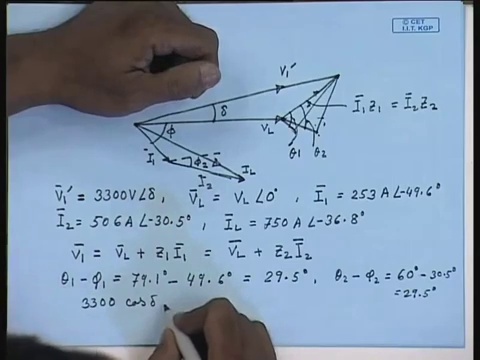 © CET
I.I.T. KGP
V̄₁′
δ
V_L
Ī₁Z₁ = Ī₂Z₂
θ₁ θ₂
φ
Ī₁
φ₂
I₂
I_L
V̄₁′ = 3300V∠δ, V̄_L = V_L∠0°, Ī₁ = 253A∠-49.6°
Ī₂ = 506A∠-30.5°, Ī_L = 750A∠-36.8°
V̄₁ = V̄_L + Z₁Ī₁ = V̄_L + Z₂Ī₂
θ₁-φ₁ = 79.1° - 49.6° = 29.5°, θ₂-φ₂ = 60° - 30.5°
= 29.5°
3300 cosδ